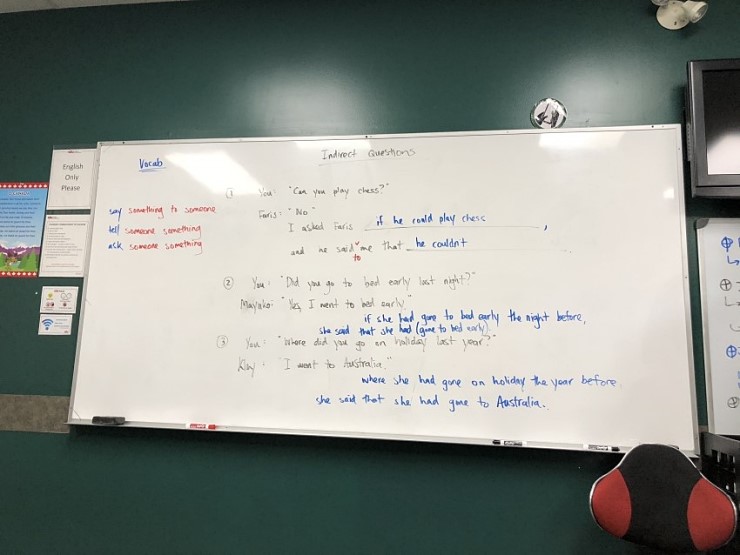 English
Only
Please
Vocab
say something to someone
tell someone something
ask someone something
Indirect Questions
① You: "Can you play chess?"
Faris: "No"
I asked Faris if he could play chess,
and he said to me that he couldn't
② You: "Did you go to bed early last night?"
Mayako: "Yes, I went to bed early."
if she had gone to bed early the night before,
she said that she had (gone to bed early).
③ You: "Where did you go on holiday last year?"
"I went to Australia."
where she had gone on holiday the year before.
she said that she had gone to Australia.